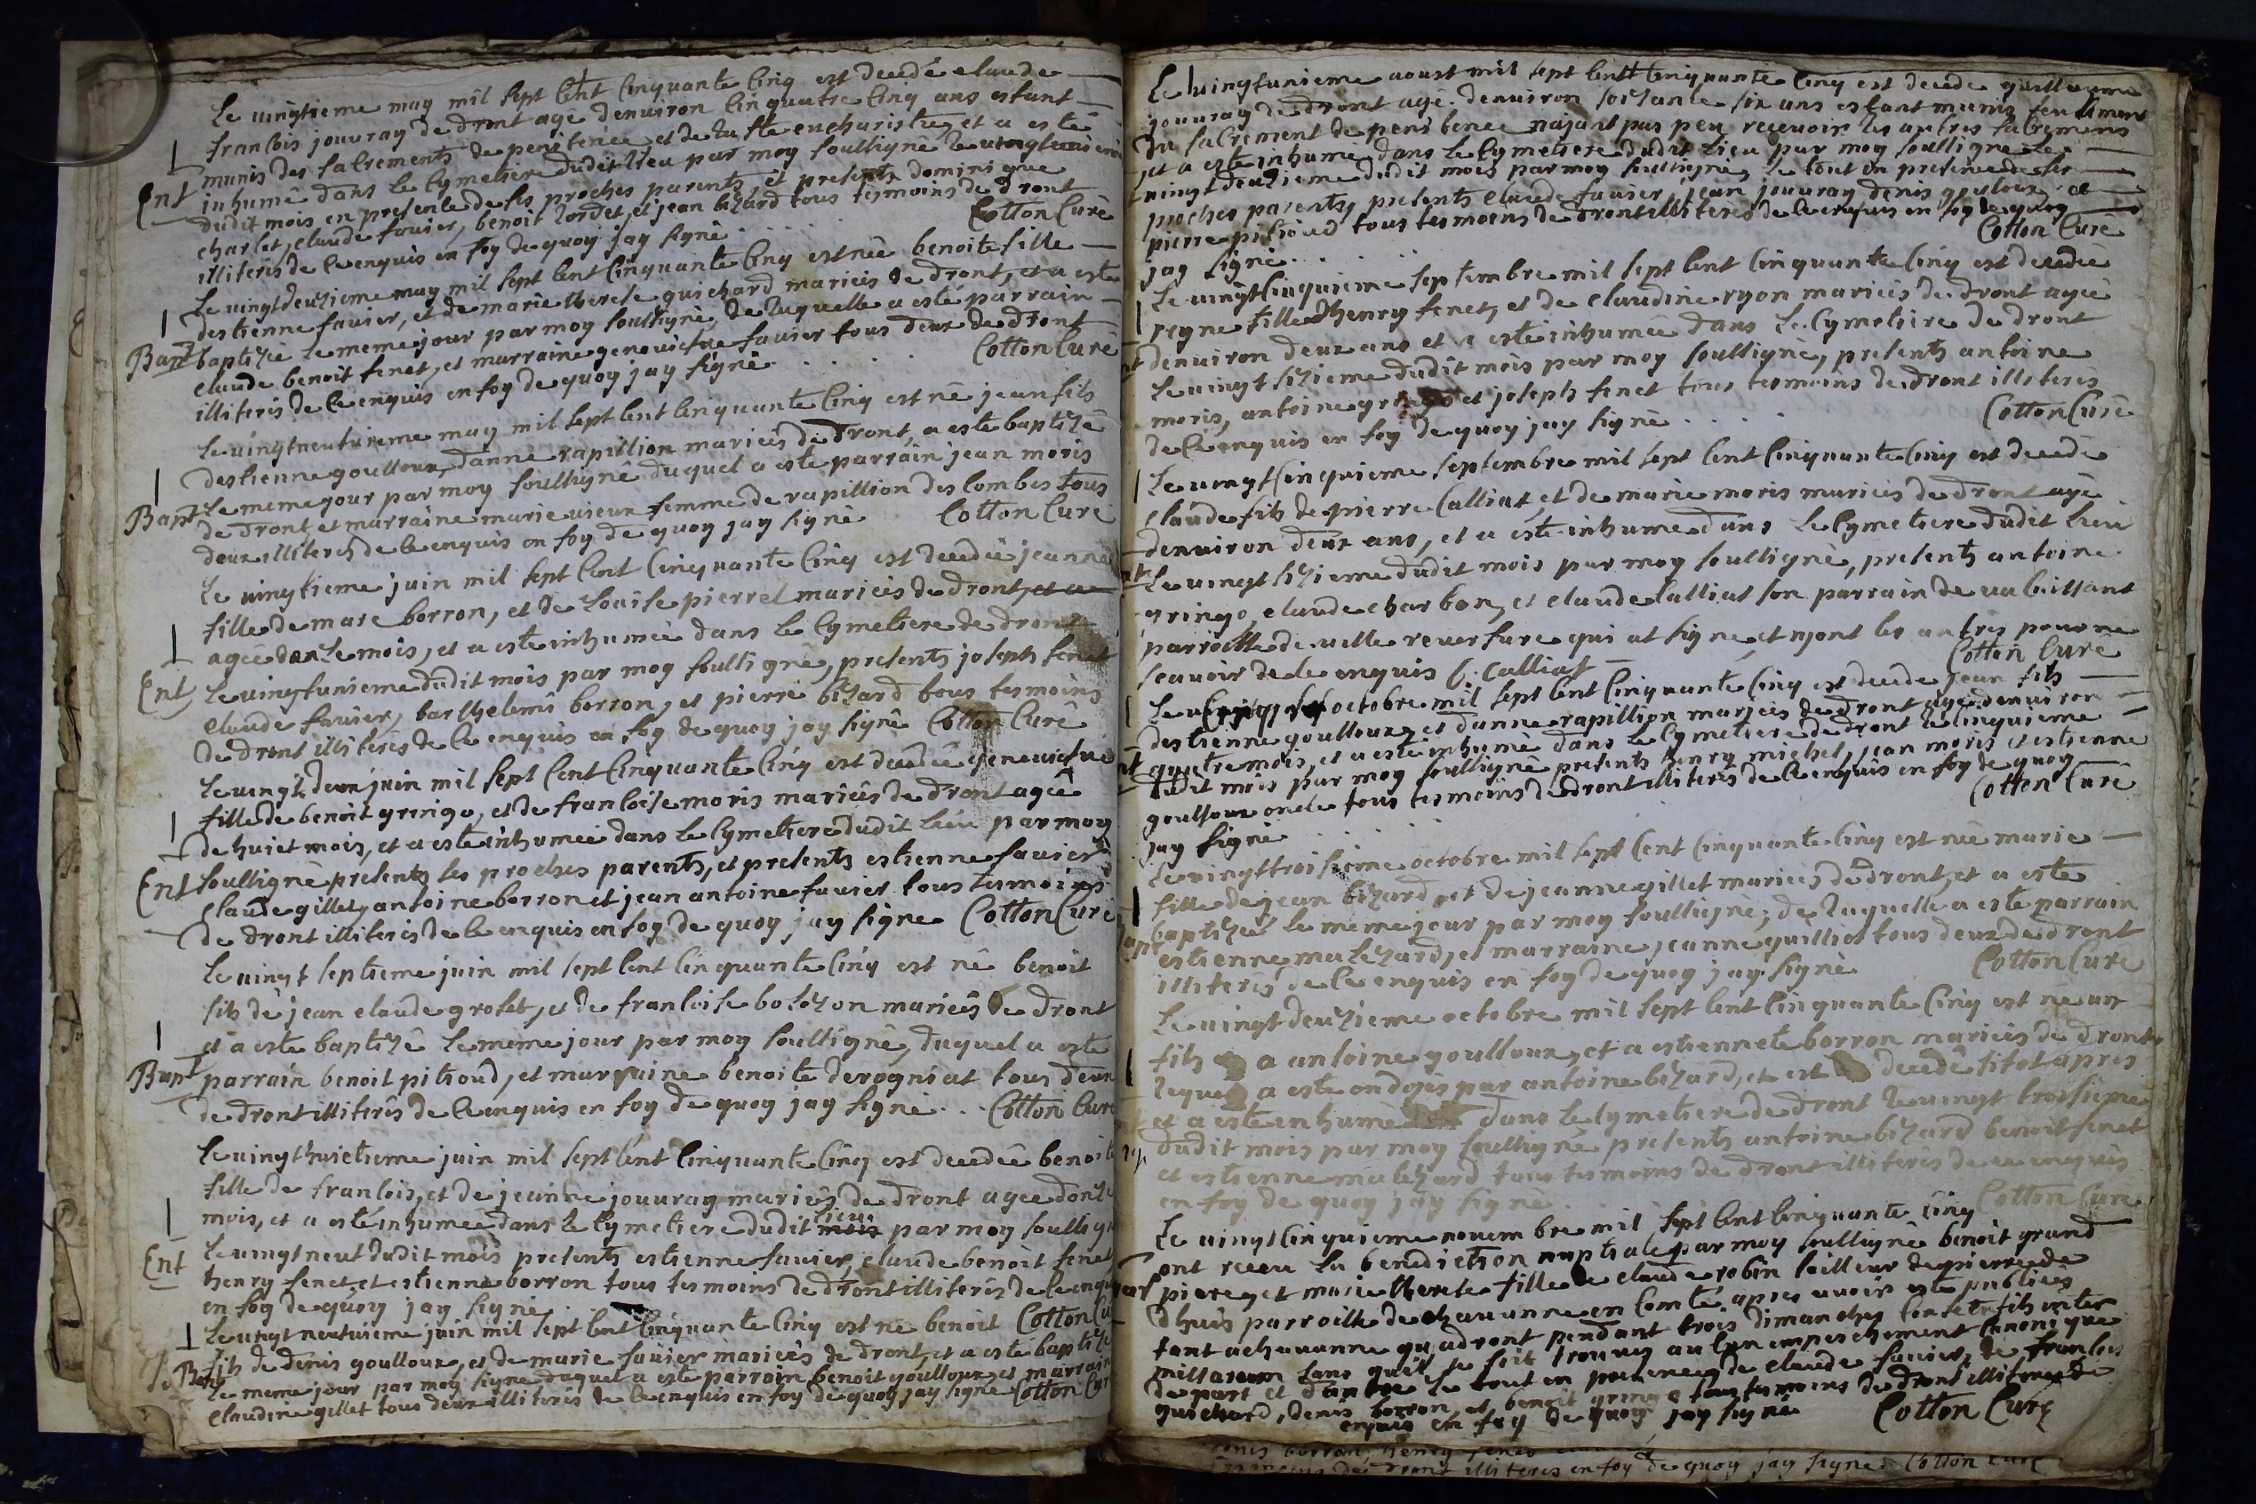 Le vingtieme may mil sept cent cinquante cinq est decedé claude
francois jouvray de dront agé denviron cinquante cinq ans estant
munis des sacrements de penitence et de la ste eucharistie, et a esté
Ent inhumé dans le cymetiere dudit lieu par moy soussigné le vingtunieme
dudit mois en presence de ses proches parents, et presents dominique
charlet, claude favier, benoit Zordet, et jean bizard tous tesmoins de dront
illiterés de ce enquis en foy de quoy jay signé . . . . Cotton Curé
Le vingtdeuzieme may mil sept cent cinquante cinq est née benoite fille
destienne favier, et de marie therese guichard mariés de dront, et a esté
Bapt baptizée le meme jour par moy soussigné, de laquelle a esté parrain
claude benoit fenet, et marraine genevieve favier tous deux de dront
illiterés de ce enquis en foy de quoy jay signé . . . . Cotton Curé
Le vingtneuvieme may mil sept cent cinquante cinq est né jean fils
destienne goulloux, danne rapillion mariés de dront, a esté baptizé
Bapt Le meme jour par moy soussigné duquel a esté parrain jean moris
de dront et marraine marie vieux femme de rapillion des combes tous
deux illiterés de ce enquis en foy de quoy jay signé Cotton Curé
Le vingtieme juin mil sept cent cinquante cinq est decedée jeanne
fille de marc borron, et de Louise pierrel mariés de dront, et a
agée donze mois, et a esté inhumée dans le cymetiere de dront
Ent Le vingtunieme dudit mois par moy soussigné, presents joseph fenet
claude favier, barthelemi borron, et pierre bizard tous tesmoins
de dront illiterés de ce enquis en foy de quoy jay signé Cotton Curé
Le vingt deux juin mil sept cent cinquante cinq est decedée genevieve
fille de benoit gringo, et de francoise moris mariés de dront agée
de huict mois, et a esté inhumée dans le cymetiere dudit lieu par moy
Ent soussigné presents les proches parents, et presents estienne favier
claude gillet, antoine borron et jean antoine favier tous tesmoins
de dront illiterés de ce enquis en foy de quoy jay signé Cotton Curé
Le vingt septieme juin mil sept cent cinquante cinq est né benoit
fils de jean claude groset, et de francoise bolozon mariés de dront
et a esté baptizé le meme jour par moy soussigné, duquel a esté
Bapt parrain benoit pitioud, et marraine benoite derogniat tous deux
de dront illiterés de ce enquis en foy de quoy jay signé . . . Cotton Curé
Le vingthuictieme juin mil sept cent cinquante cinq est decedée benoite
fille de francois, et de jeanne jouvray mariés de dront agée donze
mois, et a esté inhumée dans le cymetiere dudit mois lieu par moy soussigné
Ent Le vingtneuf dudit mois presents estienne favier, claude benoit fenet
henry fenet, et estienne borron tous tesmoins de dront illiterés de ce enquis
en foy de quoy jay signé. Cotton Cu
Le vingtneuvieme juin mil sept cent cinquante cinq est né benoit
Bapt fils de denis goulloux, et de marie favier mariés de dront, et a esté baptizé
Le meme jour par moy signé duquel a esté parrain benoit goulloux, et marraine
claudine gillet tous deux illiterés de ce enquis en foy de quoy jay signé Cotton Cur
Le vingtunieme aoust mil sept cent cinquante cinq est decede guillaume
jouvray de dront agé denviron soixante six ans estant munis seullement
du sacrement de penitence nayant pas peu recevoir les autres sacremens
et a esté inhumé dans le cymetiere dudit lieu par moy soussigné le
vingtdeuzieme dudit mois par moy soussigné, le tout en presence de ses
proches parents, presents claude favier, jean jouvray denis goulloux et
pierre pitioud tous tesmoins de dront illiterés de ce enquis en foy de quoy
jay signé . . . . . . Cotton Curé
Le vingtcinquieme septembre mil sept cent cinquante cinq est decedée
reyne fille dhenry fenet, et de claudine ryon mariés de dront agée
denviron deux ans et a esté inhumée dans le cymetiere de dront
Le vingt sizieme dudit mois par moy soussigné, presents antoine
moris, antoine gringo et joseph fenet tous tesmoins de dront illiterés
de ce enquis en foy de quoy jay signé . . . . Cotton Curé
Le vingtcinquieme septembre mil sept cent cinquante cinq est decedé
claude fils de pierre Calliat, et de marie moris mariés de dront agé
denviron deux ans, et a esté inhumé dans le cymetiere dudit lieu
Le vingt sizieme dudit mois par moy soussigné, presents antoine
gringo, claude charbon, et claude Calliat son parrain de
parroisse de qui at signé, et nont les autres pour ne
scavoir de ce enquis C. Calliat Cotton Curé
Le octobre mil sept cent cinquante cinq est decede jean fils
destienne goulloux, et danne rapillion mariés de dront agé denviron
quatre mois, et a esté inhumé dans le cymetiere de dront le cinquieme
dudit mois par moy soussigné presents henry michel, jean moris et estienne
goulloux oncle tous tesmoins de dront illiterés de ce enquis en foy de quoy
jay signé . . . . . Cotton Curé
Le vingttroisieme octobre mil sept cent cinquante cinq est née marie
fille de jean bizard, et de jeanne gillet mariés de dront, et a esté
baptizée le meme jour par moy soussigné, de laquelle a esté parrain
estienne malezard, et marraine jeanne guilliot tous deux de dront
illiterés de ce enquis en foy de quoy jay signé Cotton Curé
Le vingtdeuzieme octobre mil sept cent cinquante cinq est né un
fils a antoine goulloux, et a estiennete borron mariés de dront
lequel a esté ondoyé par antoine bizard, et est decedé sitot apres
et a esté inhumé dans le cymetiere de dront Le vingt troisieme
dudit mois par moy soussigné presents antoine bizard benoit fenet
et estienne malezard tous tesmoins de dront illiterés de ce enquis
en foy de quoy jay signé Cotton Curé
Le vingtcinquieme novembre mil sept cent cinquante cinq
ont receu la benediction nuptiale par moy soussigné benoit grand
piere, et marie therese fille de claude robin tailleur de pierre de
dhuis parroisse de chavanne en comté apres avoir esté publiés
tant achavanne qu'adront pendant trois dimanches
missarum sans quil se soit trouvés aulcun empeschement canonique
de part et dautre le tout en presence de claude favier, de francois
guichard, denis borron, et benoit gringo tous tesmoins de dront illiterés de
enquis en foy de quoy jay signé Cotton Curé
denis borron, henry fenet
tesmoins de dront illiterés en foy de quoy jay signé. Cotton Curé